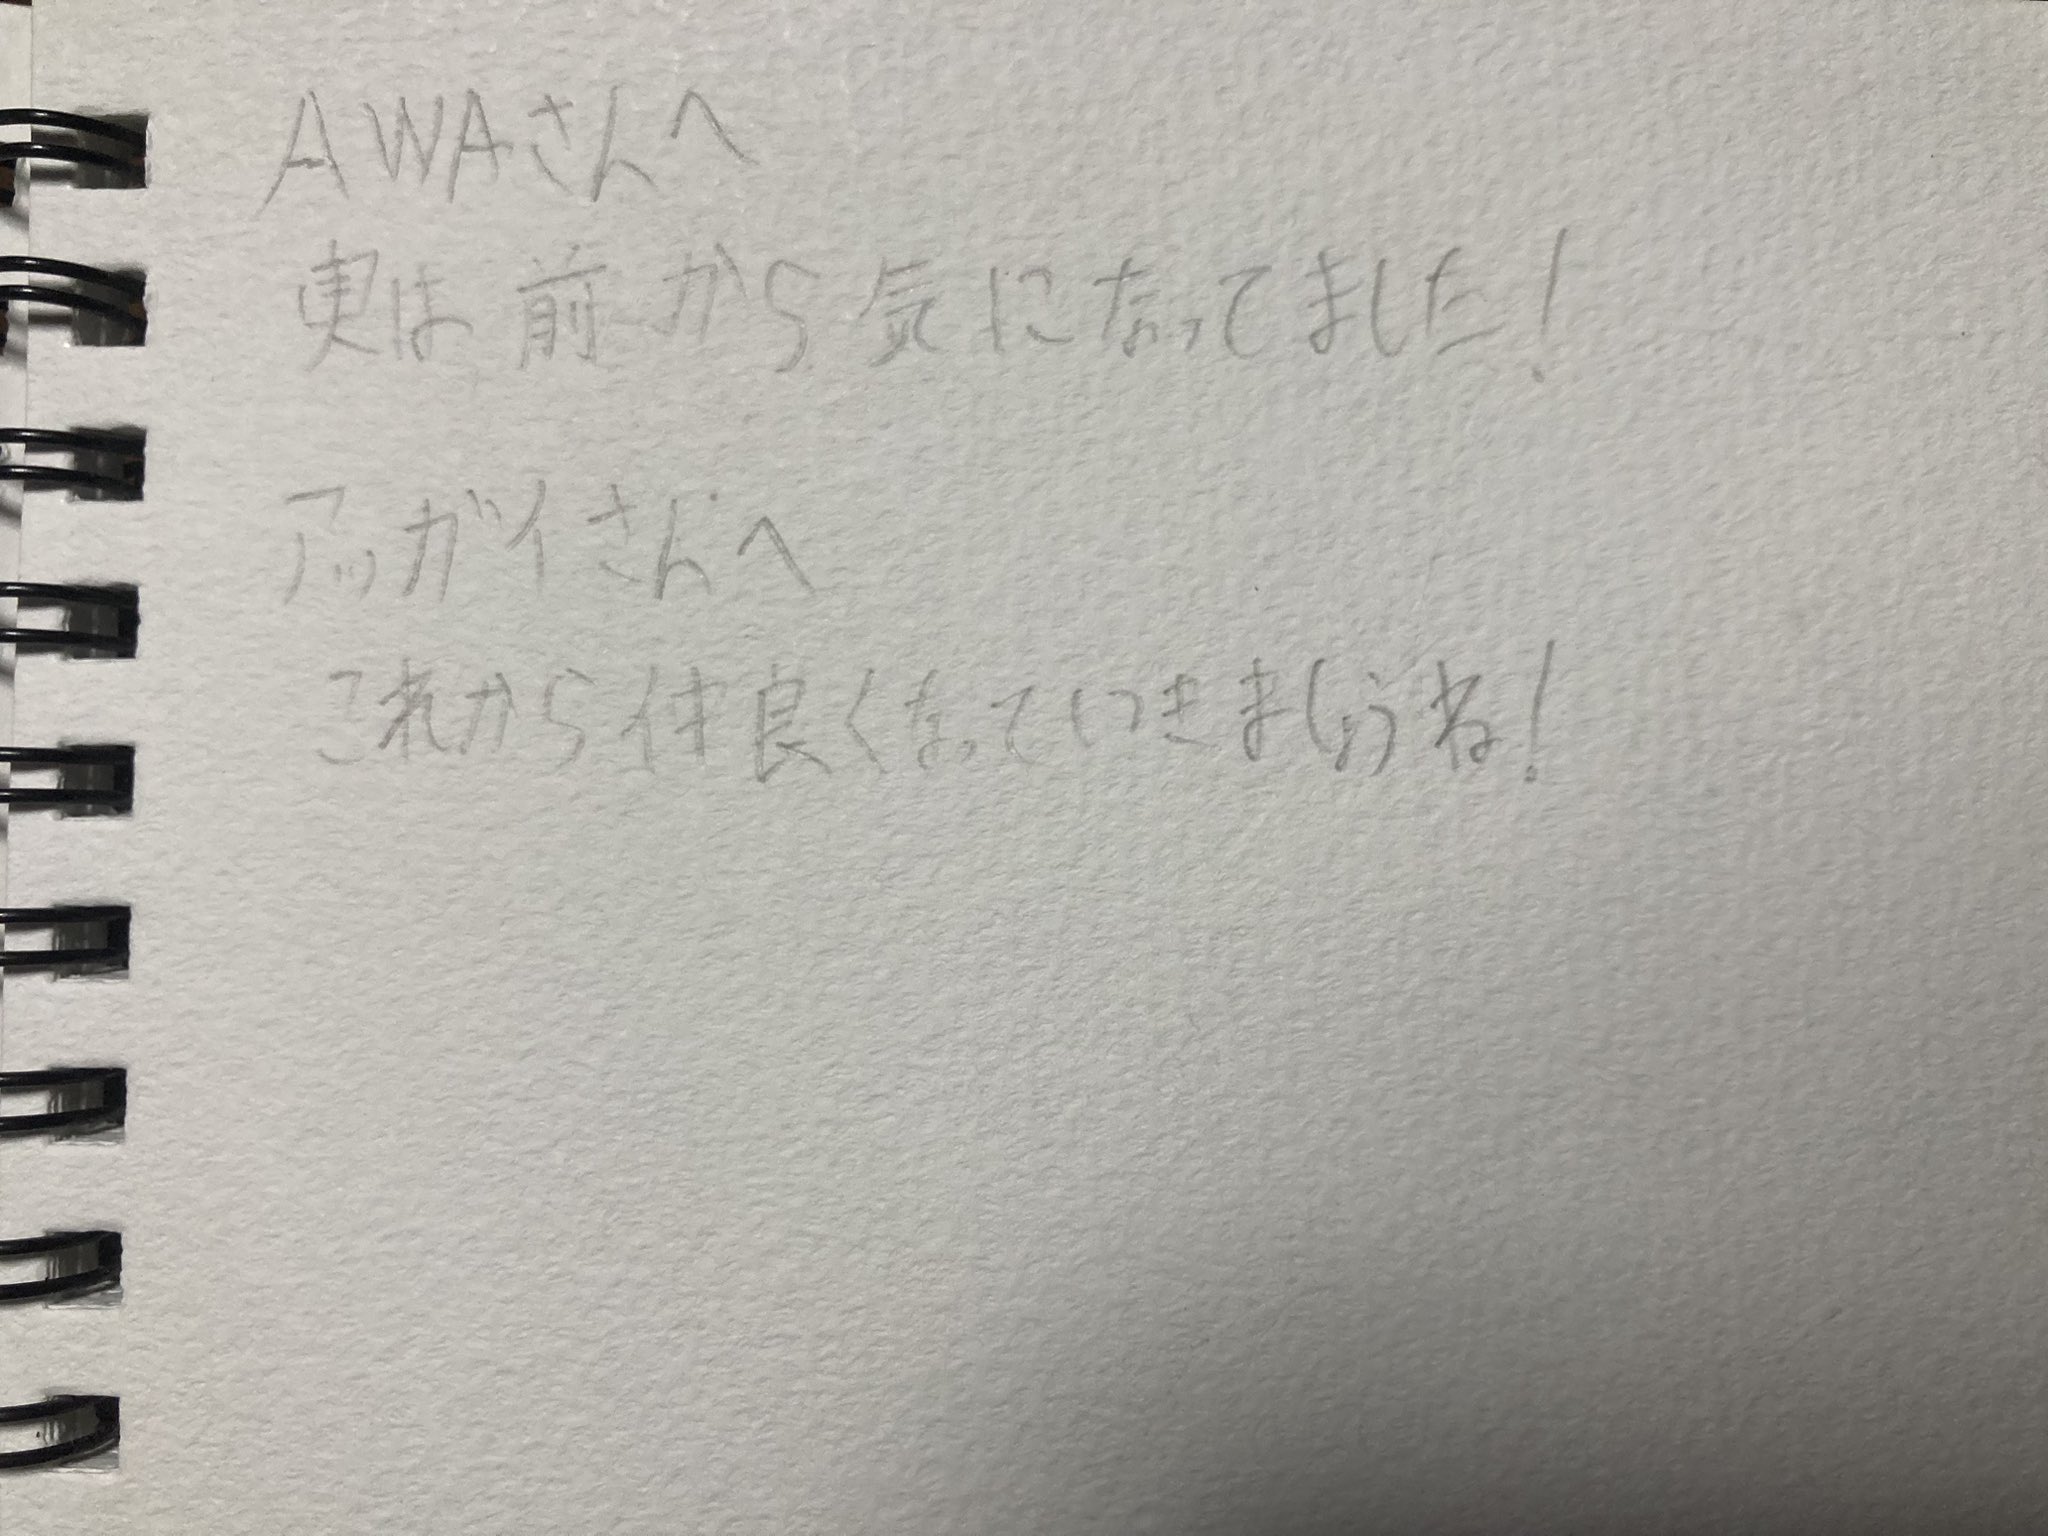 AWAさんへ
実は前から気になってました!
アッガイさんへ
これから仲良くなっていきましょうね!